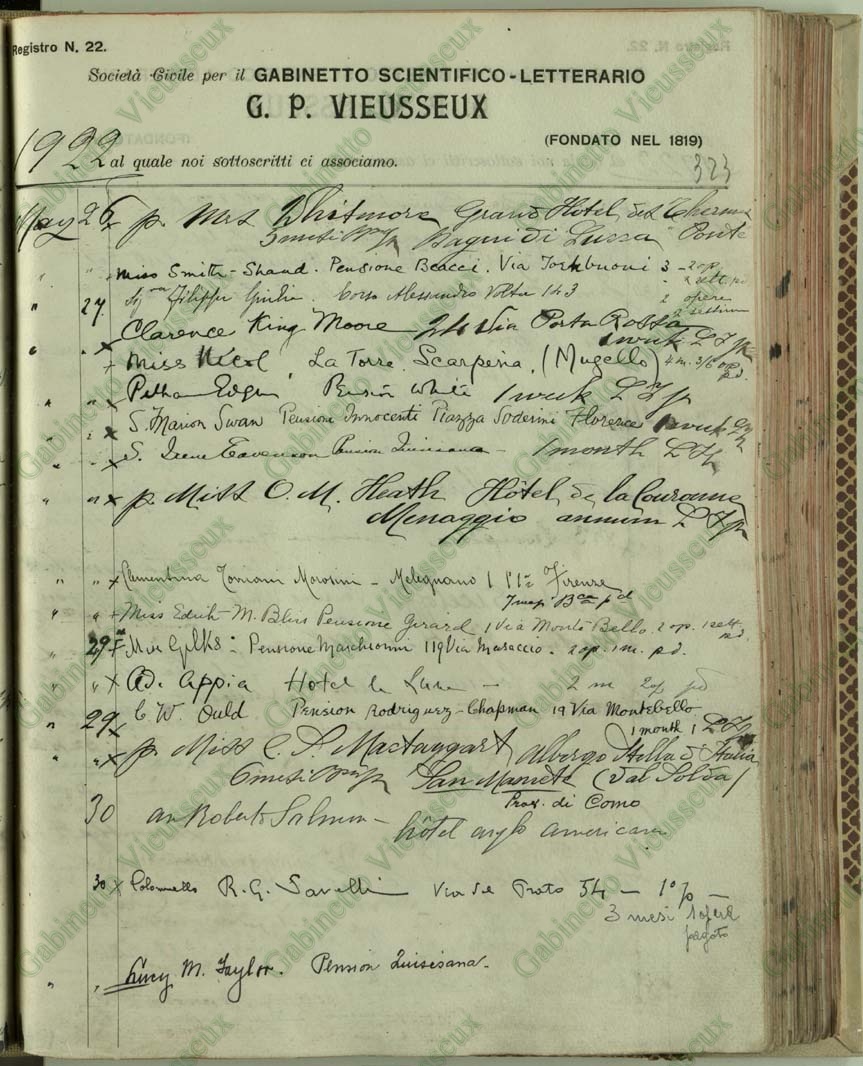 Registro N. 22.
Società Civile per il GABINETTO SCIENTIFICO-LETTERARIO
G. P. VIEUSSEUX
(FONDATO NEL 1819)
1922 al quale noi sottoscritti ci associamo.
323
May 26 x p. Mrs Whitmore Grand Hotel des
3 mesi Bagni di Lucca Ponte
" " Miss Smith-Shand. Pensione Beacci. Via Tornabuoni 3 - 2 op.
" 27 Filippi Giulia. Corso Alessandro Volta 143 2 opere
Clarence King Moore 24 Via Porta Rossa
1 week
Miss Nicol, La Torre, Scarperia, (Mugello) 4 m. 3/6 op.
pd.
Pelham Edgar Pension White 1 week
S. Marion Swan Pensione Innocenti Piazza Soderini Florence 1 week
S. Irene Pension Quisisana - 1 month
" " x p. Miss O. M. Heath Hôtel de la Couronne
Menaggio annum
" " x Clementina Morosini - Melegnano Firenze
pd
" " + Miss Edith M. Bliss Pensione Girard 1 Via Monte Bello. 2 op. 1 sett.
pd.
29 Miss Gilks - Pensione Marchionni 119 Via Masaccio. 2 op. 1 m. pd.
" " x Ad. Appia Hotel la Luna - 2 m 2 op pd
" 29 x C W. Ould Pension Rodriguez-Chapman 19 Via Montebello
1 month 1
" " x p. Miss C. S. Mactaggart Albergo Stella d'Italia
6 mesi San Mamete (Val Solda)
Prov. di Como
30 Roberto Salmon - hôtel anglo americano
30 x Colonnello R. G. Savelli Via del Prato 54 - 1° p -
3 mesi 1 opera
pagato
" " Lucy M. Taylor. Pension Quisisana.